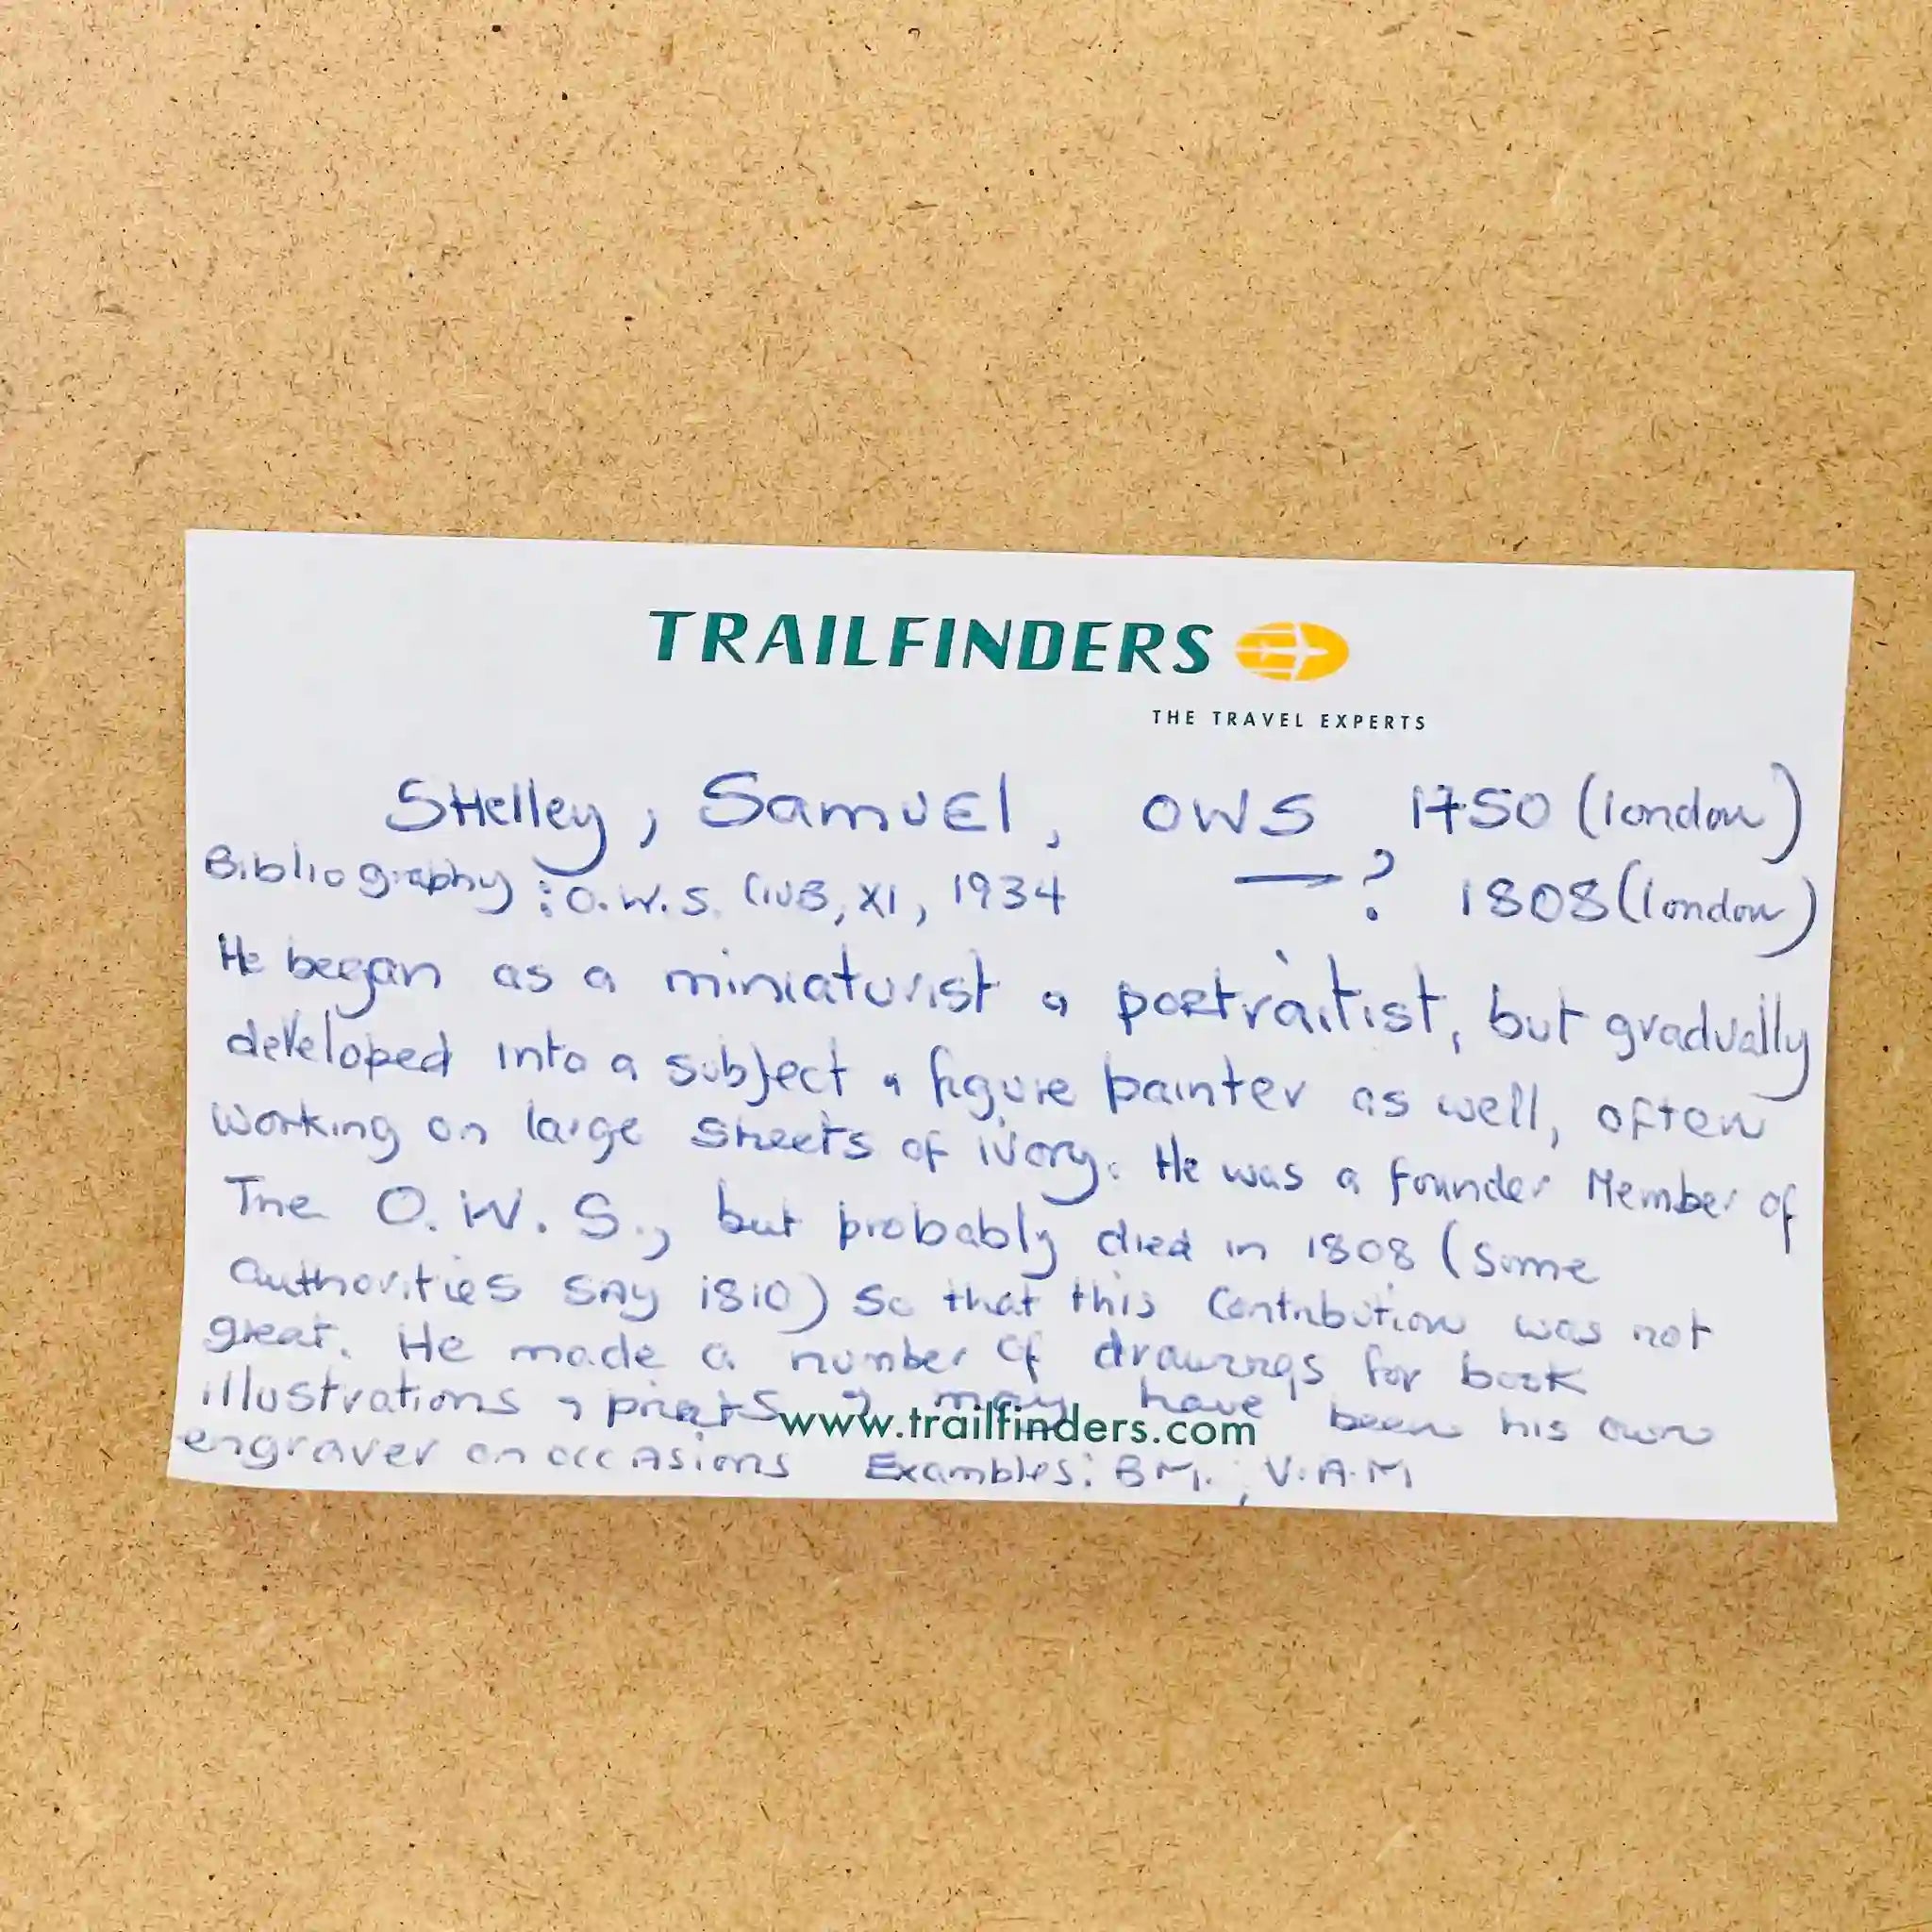 TRAILFINDERS
THE TRAVEL EXPERTS
SHelley, SamuEl, OWS, 1750 (london)
Bibliography: O.W.S. Club, XI, 1934 — ? 1808 (london)
He began as a miniaturist & portraitist, but gradually
developed into a subject & figure painter as well, often
working on large sheets of ivory. He was a founder Member of
The O.W.S., but probably died in 1808 (some
authorities say 1810) so that this contribution was not
great. He made a number of drawings for book
illustrations & prints & may have been his own
www.trailfinders.com
engraver on occasions Examples: B.M.; V.A.M